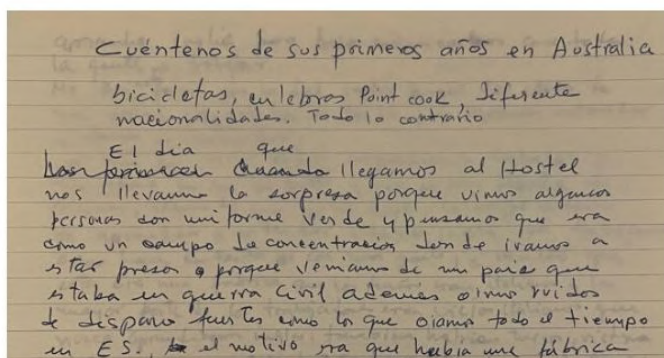 Cuéntenos de sus primeros años en Australia
bicicletas, culebras Point cook, diferente
nacionalidades. Todo lo contrario
El dia que
llegamos al Hostel
nos llevamos la sorpresa porque vimos algunas
personas con uniforme verde y pensamos que era
como un campo de concentracion donde ivamos a
estar presos porque veniamos de un pais que
estaba en guerra Civil además oimos ruidos
de disparo fuertes como los que oiamos todo el tiempo
en ES. el motivo era que habia una fábrica